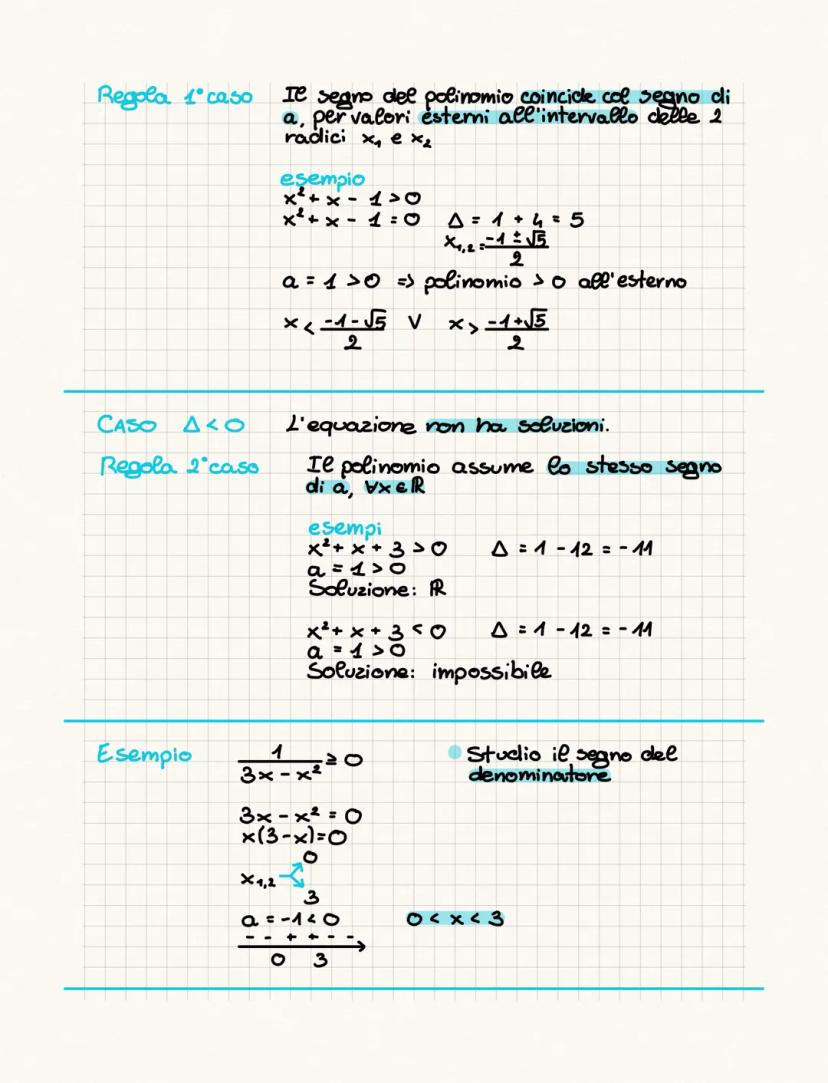 Regola 1° caso Il segno del polinomio coincide col segno di
a, per valori esterni all'intervallo delle 2
radici x₁ e x₂
esempio
x² + x - 1 > 0
x² + x - 1 = 0 Δ = 1 + 4 = 5
x₁,₂ = (-1 ± √5)/2
a = 1 > 0 => polinomio > 0 all'esterno
x < (-1 - √5)/2 V x > (-1 + √5)/2
CASO Δ < 0 L'equazione non ha soluzioni.
Regola 2° caso Il polinomio assume lo stesso segno
di a, ∀x ∈ ℝ
esempi
x² + x + 3 > 0 Δ = 1 - 12 = -11
a = 1 > 0
Soluzione: ℝ
x² + x + 3 < 0 Δ = 1 - 12 = -11
a = 1 > 0
Soluzione: impossibile
Esempio 1/(3x - x²) ≥ 0 Studio il segno del
denominatore
3x - x² = 0
x(3 - x) = 0
0
x₁,₂
3
a = -1 < 0 0 < x < 3
- - + + - -
0 3